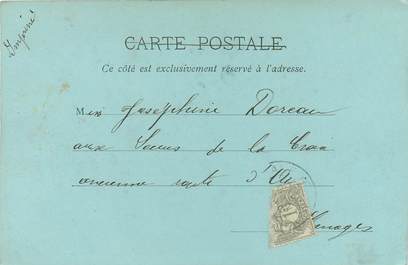 Imprimé
CARTE POSTALE
Ce côté est exclusivement réservé à l'adresse.
M Joséphine Doreau
aux Sœurs de la Croix
ancienne route d'
Limoges